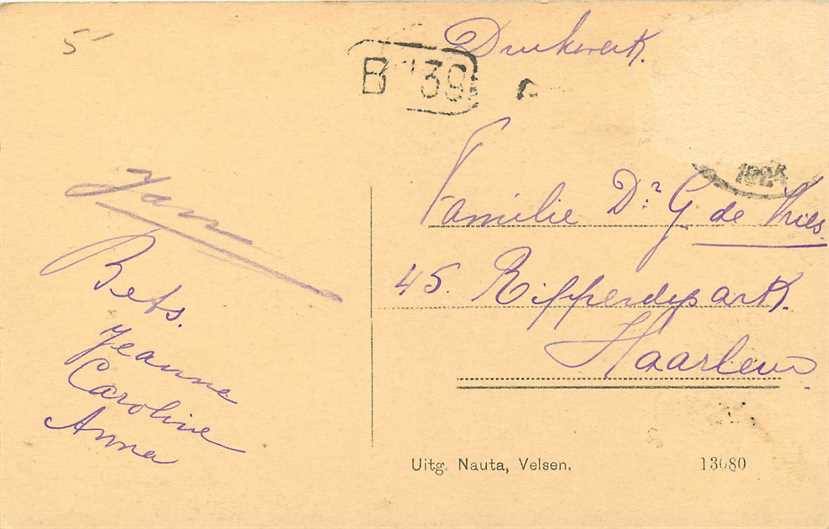 5
Drukwerk.
B 39
Jan
Bets.
Jeanne
Caroline
Anna
Familie Dr. G de Vries.
45. Ripperdapark.
Haarlem
Uitg. Nauta, Velsen.
13680